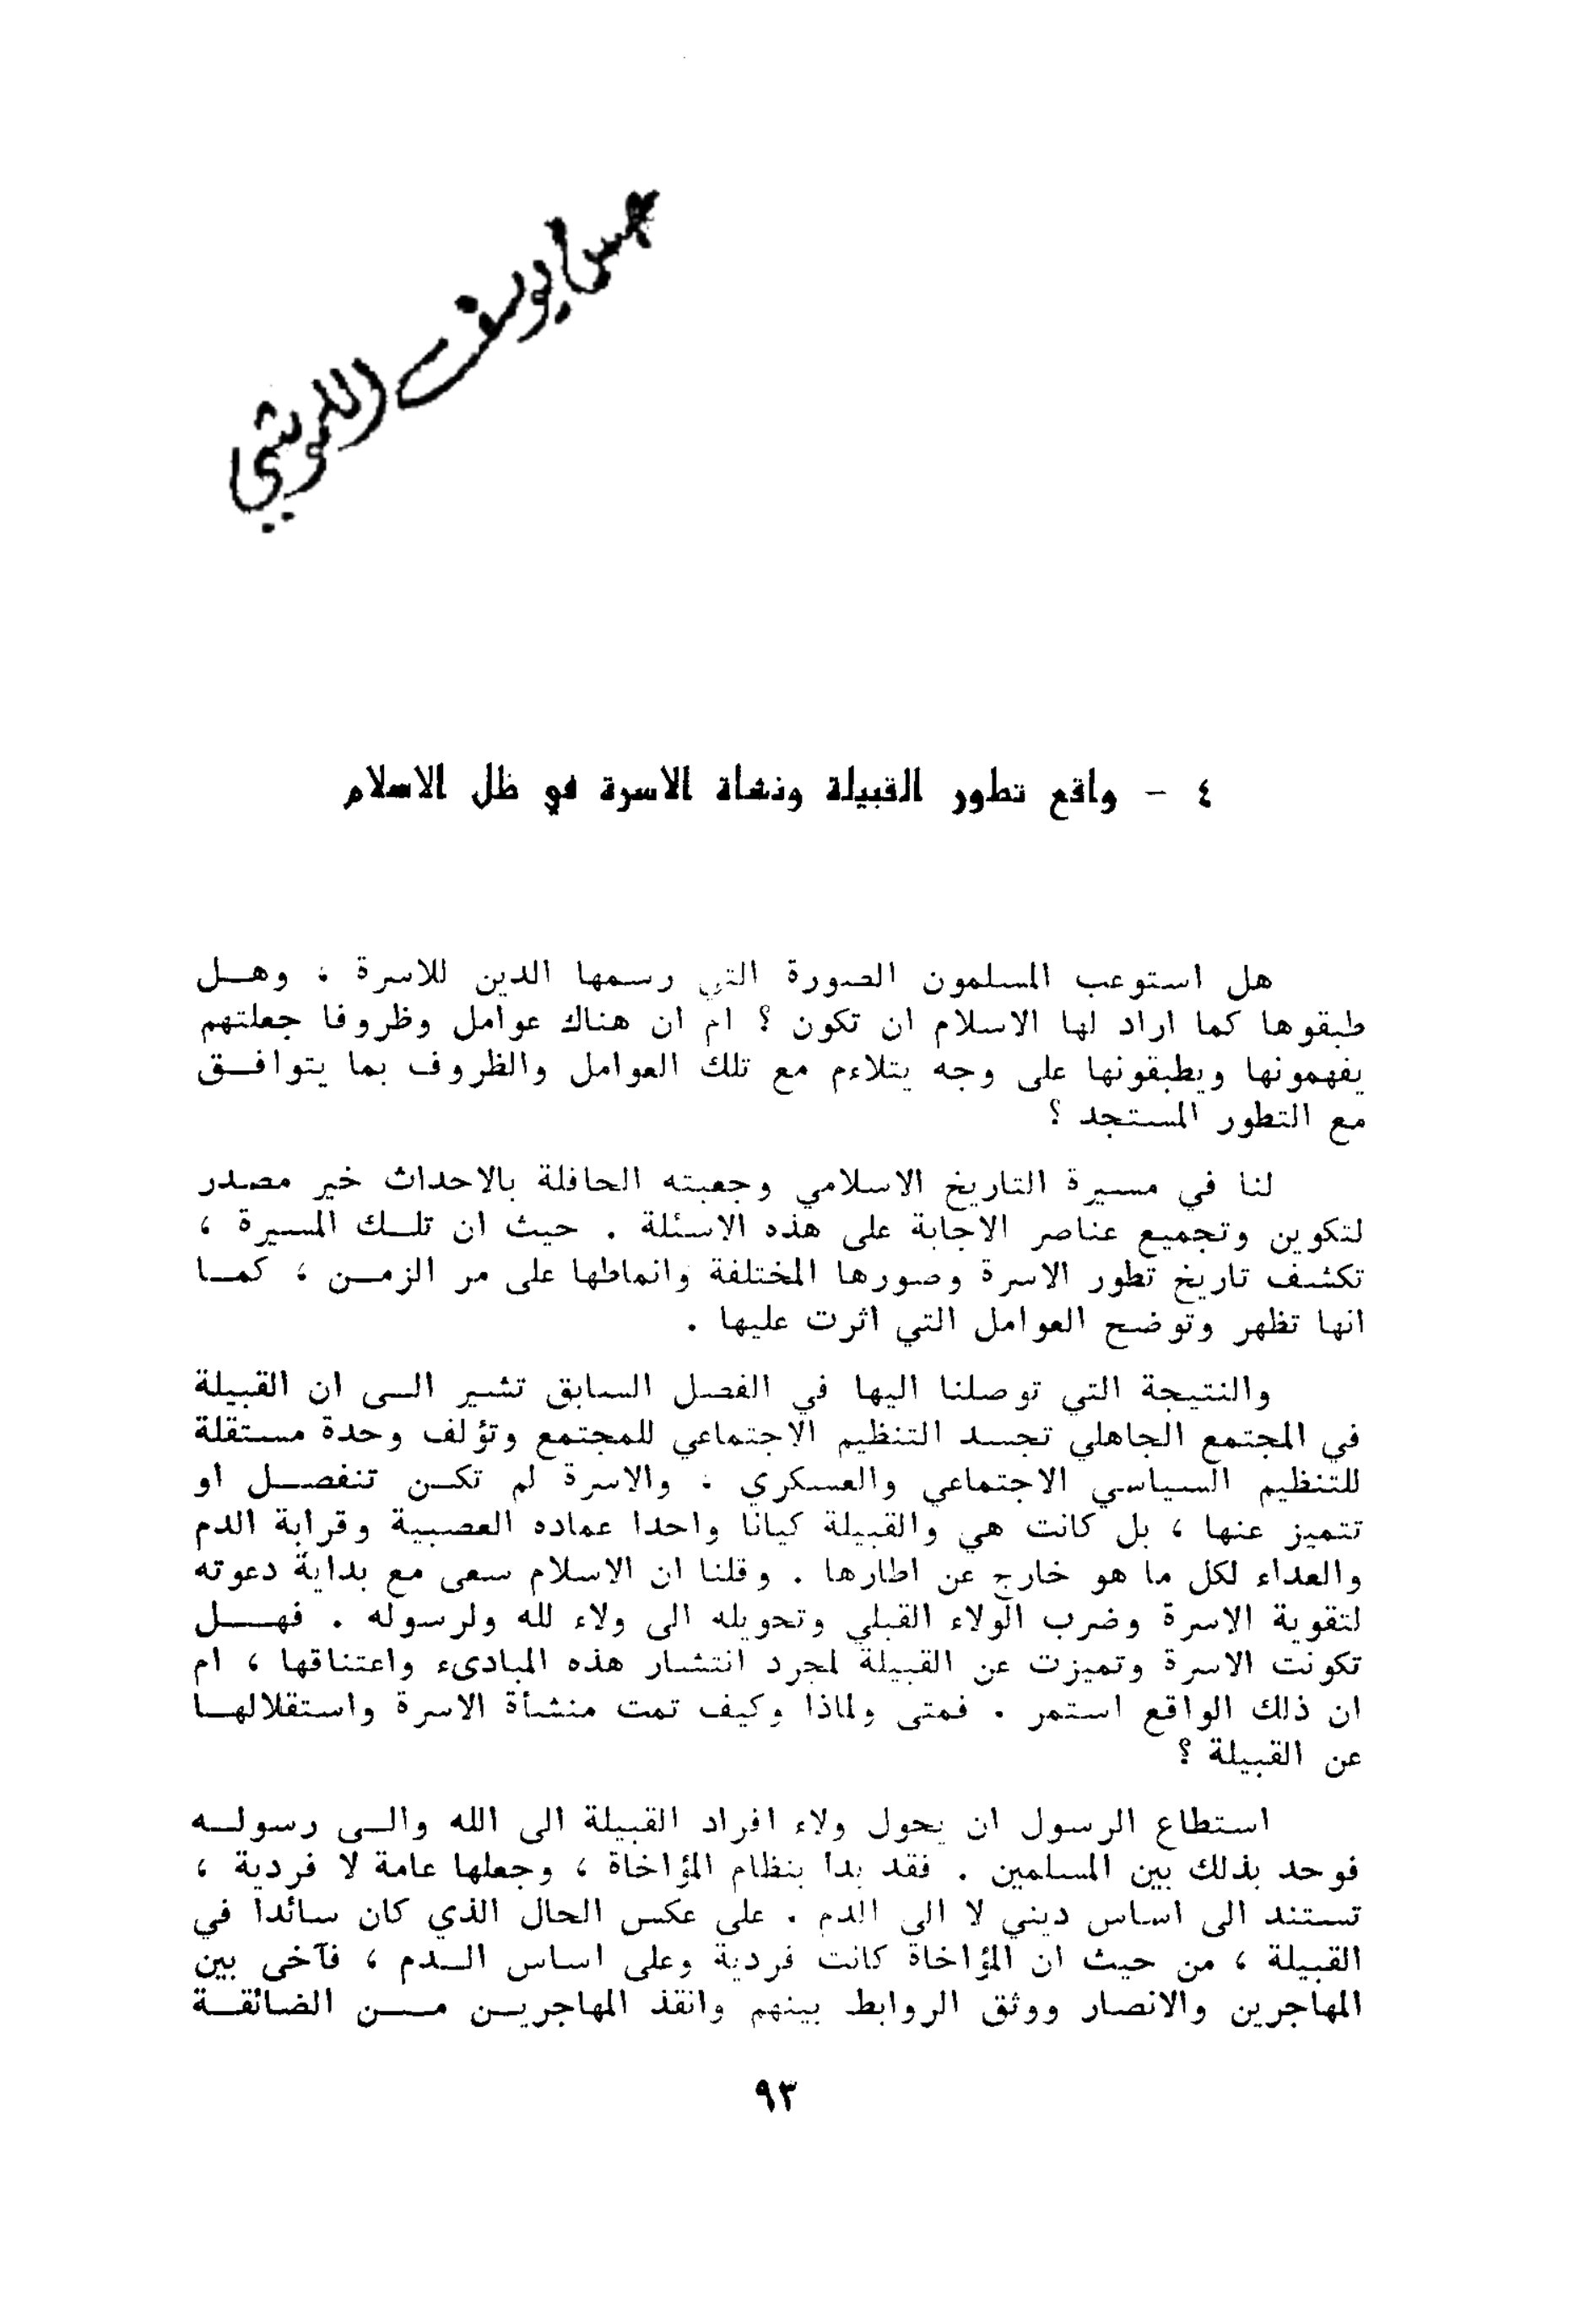 يوسف
٤ - واقع تطور القبيلة ونشاة الاسرة في ظل الاسلام
هل استوعب المسلمون الصورة التي رسمها الدين للاسرة ، وهـل
طبقوها كما اراد لها الاسلام ان تكون ؟ ام ان هناك عوامل وظروفا جعلتهم
يفهمونها ويطبقونها على وجه يتلاءم مع تلك العوامل والظروف بما يتوافـق
مع التطور المستجد ؟
لنا في مسيرة التاريخ الاسلامي وجعبته الحافلة بالاحداث خير مصدر
لتكوين وتجميع عناصر الاجابة على هذه الاسئلة . حيث ان تلـك المسيرة ،
تكشف تاريخ تطور الاسرة وصورها المختلفة وانماطها على مر الزمـن ، كمـا
انها تظهر وتوضح العوامل التي اثرت عليها .
والنتيجة التي توصلنا اليها في الفصل السابق تشير الـى ان القبيلة
في المجتمع الجاهلي تجسد التنظيم الاجتماعي للمجتمع وتؤلف وحدة مستقلة
للتنظيم السياسي الاجتماعي والعسكري . والاسرة لم تكـن تنفصـل او
تتميز عنها ، بل كانت هي والقبيلة كيانا واحدا عماده العصبية وقرابة الدم
والعداء لكل ما هو خارج عن اطارها . وقلنا ان الاسلام سعى مع بداية دعوته
لتقوية الاسرة وضرب الولاء القبلي وتحويله الى ولاء لله ولرسوله . فهـل
تكونت الاسرة وتميزت عن القبيلة لمجرد انتشار هذه المبادىء واعتناقها ، ام
ان ذلك الواقع استمر . فمتى ولماذا وكيف تمت منشأة الاسرة واستقلالهـا
عن القبيلة ؟
استطاع الرسول ان يحول ولاء افراد القبيلة الى الله والـى رسولـه
فوحد بذلك بين المسلمين . فقد بدا بنظام المؤاخاة ، وجعلها عامة لا فردية ،
تستند الى اساس ديني لا الى الدم . على عكس الحال الذي كان سائدا في
القبيلة ، من حيث ان المؤاخاة كانت فردية وعلى اساس الـدم ، فآخى بين
المهاجرين والانصار ووثق الروابط بينهم وانقذ المهاجريـن مـن الضائقـة
٩٣